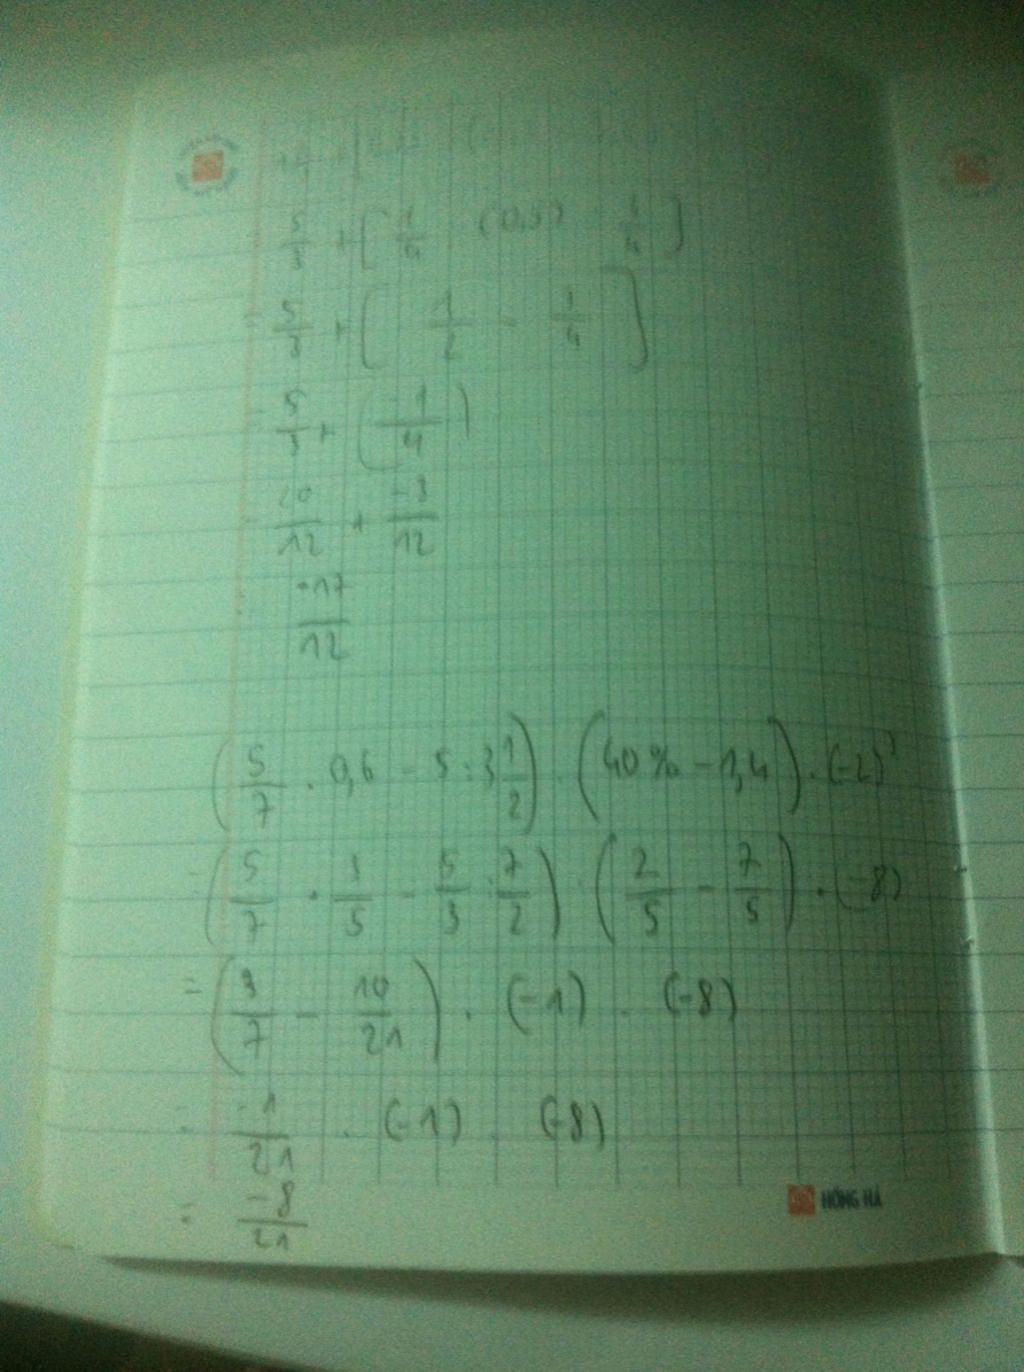 = 5/3 + [ 1/4 - (0,5) - 1/4 ]
= 5/3 + [ 1/2 - 1/4 ]
= 5/3 + ( -1/4 )
= 20/12 + -3/12
= -17/12
( 5/7 . 0,6 - 5 : 3 1/2 ) . ( 40% - 1,4 ) . (-2)³
= ( 5/7 . 3/5 - 5/3 . 7/2 ) . ( 2/5 - 7/5 ) . (-8)
= ( 3/7 - 10/21 ) . (-1) . (-8)
= -1/21 . (-1) . (-8)
= -8/21
HỒNG HÀ